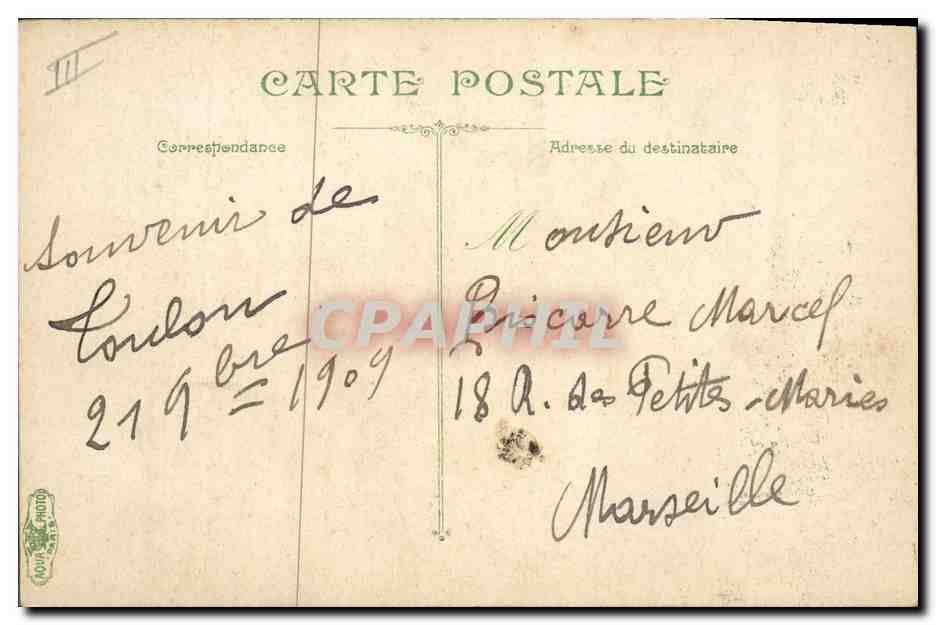 III
CARTE POSTALE
Correspondance
Adresse du destinataire
Souvenir de
Toulon
21 9bre = 1909
Monsieur
Biscarre Marcel
18 R. des Petites-Maries
Marseille
CPAPHIL
AQUA PHOTO
PARIS